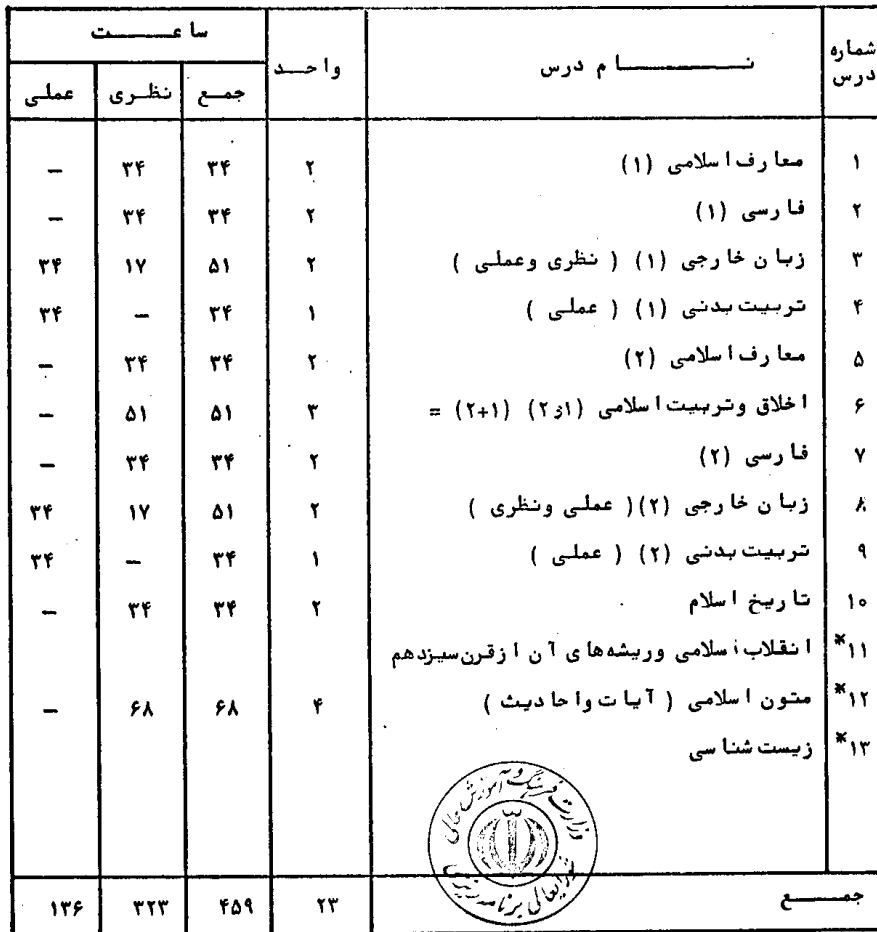 شماره درس | نام درس | واحد | ساعت
جمع | نظری | عملی
۱ | معارف اسلامی (۱) | ۲ | ۳۴ | ۳۴ | –
۲ | فارسی (۱) | ۲ | ۳۴ | ۳۴ | –
۳ | زبان خارجی (۱) ( نظری وعملی ) | ۲ | ۵۱ | ۱۷ | ۳۴
۴ | تربیت بدنی (۱) ( عملی ) | ۱ | ۳۴ | – | ۳۴
۵ | معارف اسلامی (۲) | ۲ | ۳۴ | ۳۴ | –
۶ | اخلاق وتربیت اسلامی (۱و۲) (۱+۲) = | ۳ | ۵۱ | ۵۱ | –
۷ | فارسی (۲) | ۲ | ۳۴ | ۳۴ | –
۸ | زبان خارجی (۲) ( عملی ونظری ) | ۲ | ۵۱ | ۱۷ | ۳۴
۹ | تربیت بدنی (۲) ( عملی ) | ۱ | ۳۴ | – | ۳۴
۱۰ | تاریخ اسلام | ۲ | ۳۴ | ۳۴ | –
*۱۱ | انقلاب اسلامی وریشه‌های آن ازقرن سیزدهم
*۱۲ | متون اسلامی ( آیات واحادیث ) | ۴ | ۶۸ | ۶۸ | –
*۱۳ | زیست شناسی
وزارت فرهنگ و آموزش عالی
شورایعالی برنامه ریزی
جمع | ۲۳ | ۴۵۹ | ۳۲۳ | ۱۳۶